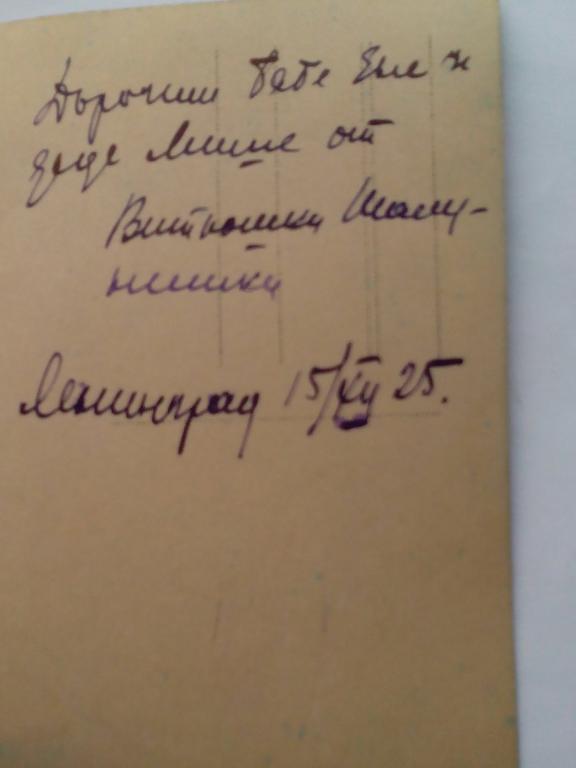 Дорогим бабе Эле и
деде Мише от
Витюшки Шалу-
нишки
Ленинград 15/XII 25.